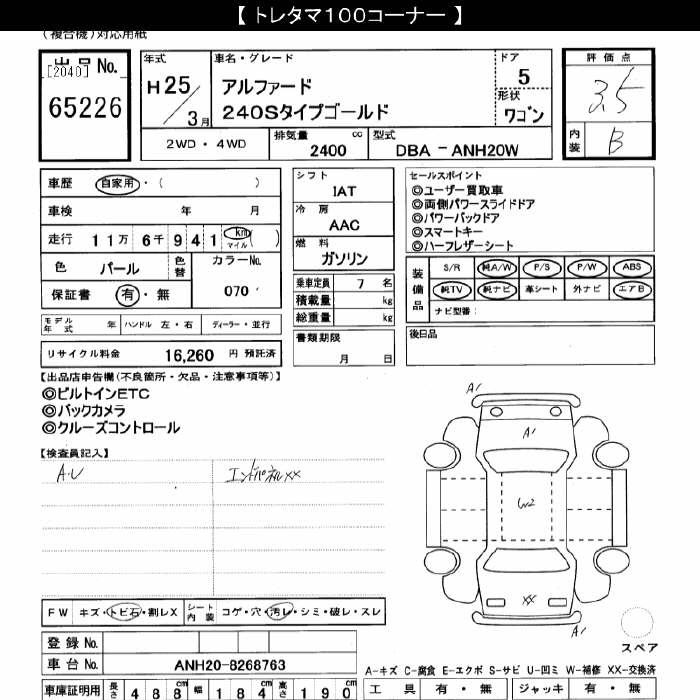 【 トレタマ100コーナー 】
(複合機)対応用紙
出品 No.
[2040]
65226
年式
H25/3月
車名・グレード
アルファード
240Sタイプゴールド
ドア
5
形状
ワゴン
評価点
3.5
内装
B
2WD・4WD
排気量 cc
2400
型式
DBA-ANH20W
車歴 自家用・( )
車検 年 月
走行 11万 6千 941 km マイル ( )
色 パール 色替
カラーNo. 070
保証書 有・無
シフト
IAT
冷房
AAC
燃料
ガソリン
乗車定員 7 名
積載量 kg
総重量 kg
セールスポイント
◎ユーザー買取車
◎両側パワースライドドア
◎パワーバックドア
◎スマートキー
◎ハーフレザーシート
装備品
S/R 純A/W P/S P/W ABS
純TV 純ナビ 革シート 外ナビ エアB
ナビ型番:
モデル年式 年 ハンドル 左・右 ディーラー・並行
書類期限
月 日
後日品
リサイクル料金 16,260 円 預託済
【出品店申告欄(不良箇所・欠品・注意事項等)】
◎ビルトインETC
◎バックカメラ
◎クルーズコントロール
【検査員記入】
A.U
エンドパネルXX
A1
A1
W2
XX
A1
スペア
FW キズ・トビ石・割レX
シート内装 コゲ・穴・汚レ・シミ・破レ・スレ
登録 No.
車台 No. ANH20-8268763
A-キズ C-腐食 E-エクボ S-サビ U-凹ミ W-補修 XX-交換済
車庫証明用 長さ 488 幅 184 高さ 190
工具 有・無 ジャッキ 有・無